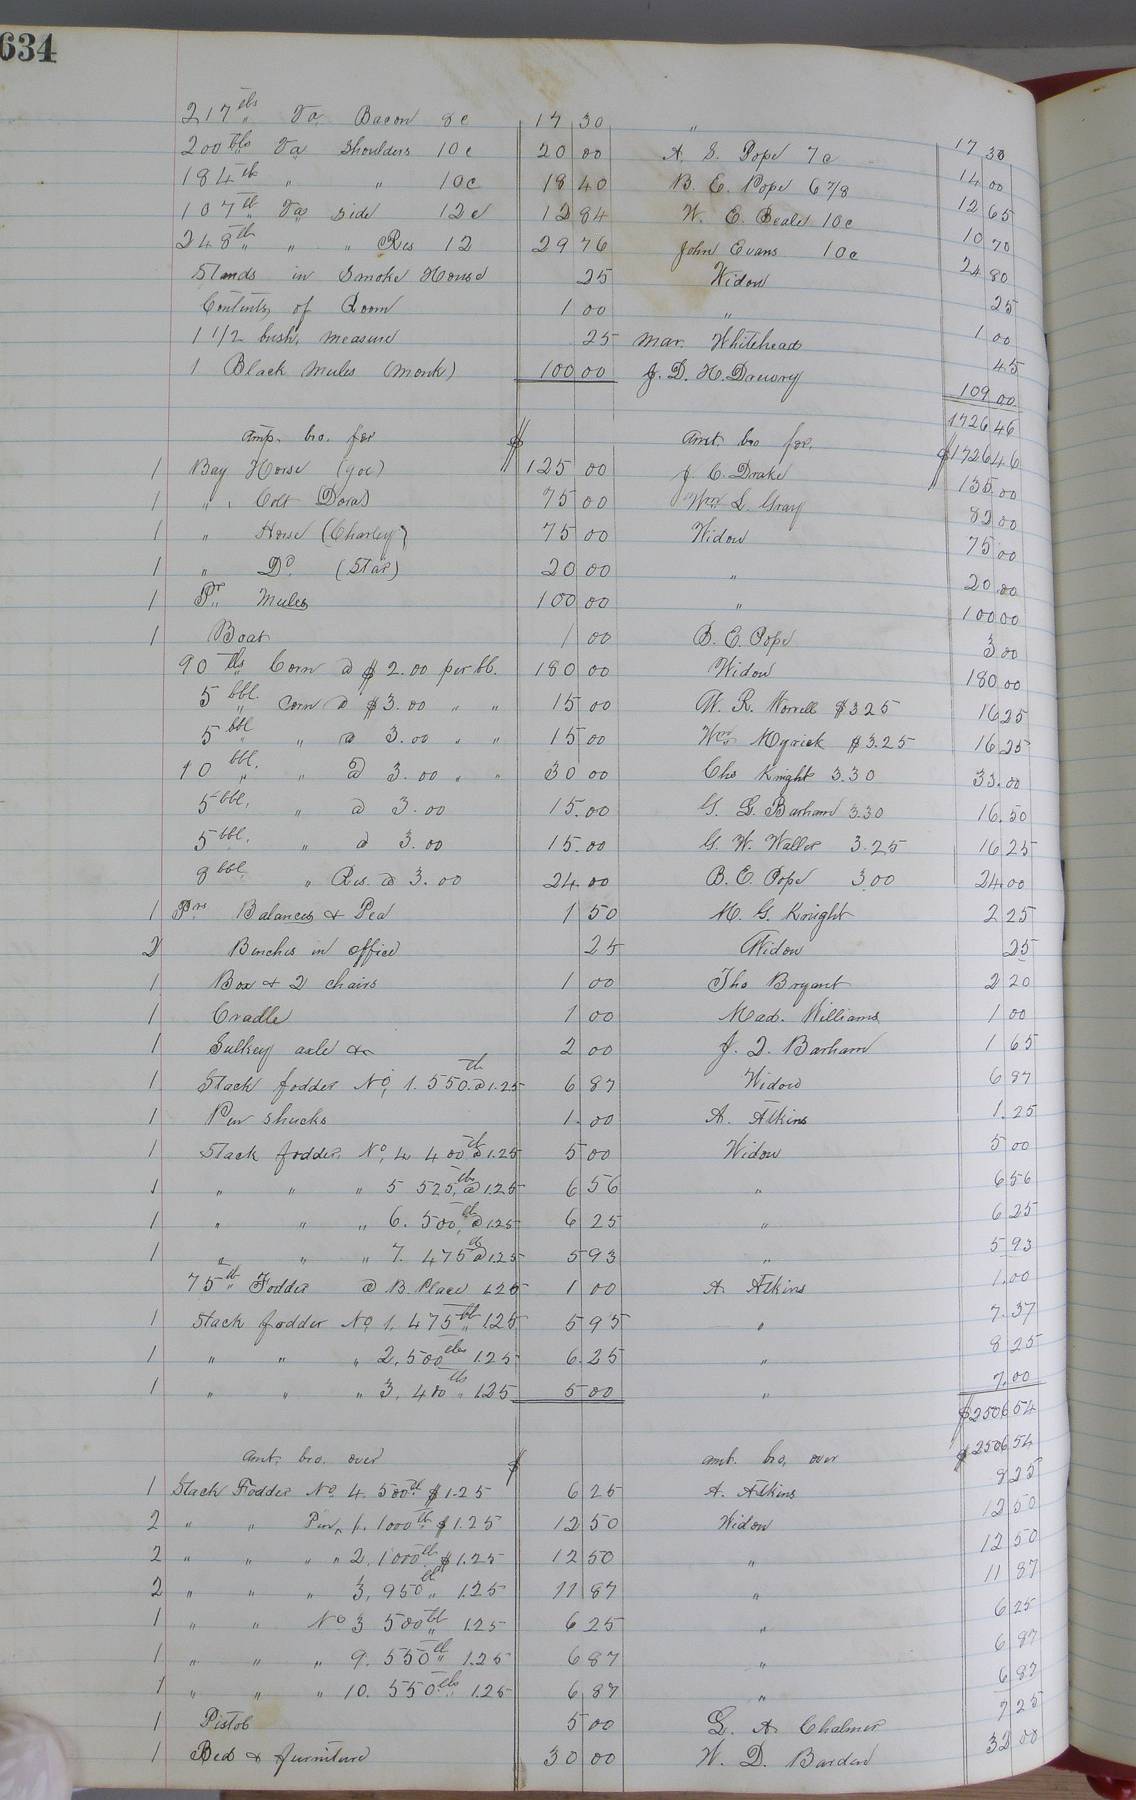 634
217 lbs Va. Bacon 8c 17 30 " 17 30
200 lbs Va Shoulders 10c 20 00 A. S. Pope 7c 14 00
184 lb " " 10c 18 40 B. E. Pope 6 7/8 12 65
107 lb Va side 12c 12 84 W. E. Beale 10c 10 70
248 lb " " Res 12 29 76 John Evans 10c 24 80
Stands in Smoke House 25 Widow 25
Contents of Room 1 00 " 1 00
1 1/2 bush. measure 25 Mar. Whitehead 45
1 Black Mules (Monk) 100 00 J. D. H. Drewry 109 00
1726 46
amt. bro. for $ amt. bro for. $1726 46
1 Bay Horse (Joe) 125 00 J. C. Drake 135 00
1 " Colt Doras 75 00 Wm L. Gray 82 00
1 " Horse (Charley) 75 00 Widow 75 00
1 " Do. (Star) 20 00 " 20 00
1 Pr. Mules 100 00 " 100 00
1 Boat 1 00 B. E. Pope 3 00
90 lbs Corn @ $2.00 per bbl. 180 00 Widow 180 00
5 bbl. Corn @ $3.00 " " 15 00 W. R. Worrell $3.25 16 25
5 bbl " @ 3.00 " " 15 00 Wm Myrick $3.25 16 25
10 bbl. " @ 3.00 " " 30 00 Chs Knight 3.30 33.00
5 bbl. " @ 3.00 15.00 G. G. Barham 3.30 16.50
5 bbl. " @ 3.00 15.00 G. W. Waller 3.25 16 25
8 bbl. " Res. @ 3.00 24.00 B. E. Pope 3.00 24.00
1 Prs Balances & Pea 1 50 M. G. Knight 2 25
2 Benches in office 25 Widow 25
1 Box & 2 chairs 1 00 Tho Bryant 2 20
1 Cradle 1 00 Mad. Williams 1 00
1 Sulkey axle &c 2 00 J. D. Barham 1 65
1 Stack fodder No. 1. 550 lb @ 1.25 6 87 Widow 6 87
1 Pen shucks 1.00 A. Atkins 1.25
1 Stack fodder No. 4 400 lb @ 1.25 5 00 Widow 5 00
1 " " " 5 525 lbs @ 1.25 6 56 " 6 56
1 " " " 6. 500 lb @ 1.25 6 25 " 6 25
1 " " " 7. 475 lb @ 1.25 5 93 " 5 93
75 lb Fodder @ B. Place 1.25 1 00 A. Atkins 1.00
1 Stack fodder No. 1. 475 lb 1.25 5 95 " 7.37
1 " " " 2, 500 lbs 1.25 6.25 " 8 25
1 " " " 3, 400 lbs " 1.25 5 00 " 7.00
$2506 54
amt. bro. over $ amt. bro. over $2506 54
1 Stack Fodder No. 4. 500 lb $1.25 6 25 A. Atkins 8 25
2 " " Pen, 1. 1000 lb $1.25 12 50 Widow 12 50
2 " " " " 2, 1000 lb $1.25 12 50 " 12 50
2 " " " 3, 950 lb " 1.25 11 87 " 11 87
1 " " No 3 500 lb " 1.25 6 25 " 6 25
1 " " " 9. 550 lb " 1.25 6 87 " 6 87
1 " " " 10. 550 lbs " 1.25 6 87 " 6 87
1 Pistol 5 00 L. A. Chalmer 7 25
1 Beds & furniture 30 00 W. D. Barden 32 00